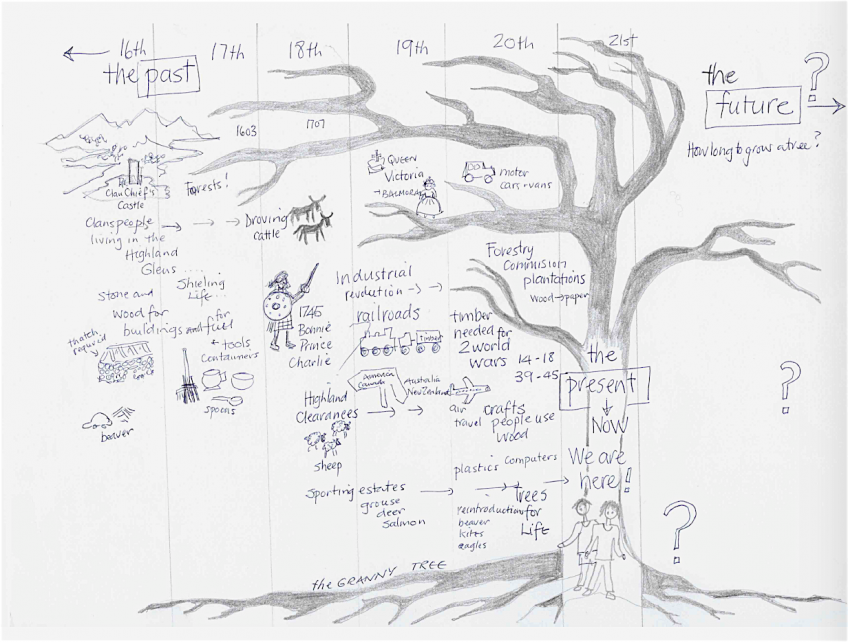 16th 17th 18th 19th 20th 21st
the past
the
future
?
How long to grow a tree?
1603
1707
Clan Chief's
Castle
Forests!
QUEEN
Victoria
→ BALMORAL
motor
cars + vans
Clanspeople → → →
living in the
Highland
Glens ....
Droving
cattle
Shieling
Life...
Stone and
wood for
buildings and fuel
for
← tools
containers
thatch
required
spoons
beaver
1745
Bonnie
Prince
Charlie
Industrial
revolution → →
railroads
Timber
America
Canada
Australia
New Zealand
Highland
Clearances
sheep
Sporting estates
grouse
deer
Salmon
Forestry
Commision
plantations
Wood → paper
timber
needed for
2 world
wars 14-18
39-45
air
travel
crafts
people use
wood
plastics
computers
Trees
for
Life
reintroductions
beaver
kites
eagles
the
present
↓
NOW
We are
here!
?
?
the GRANNY TREE